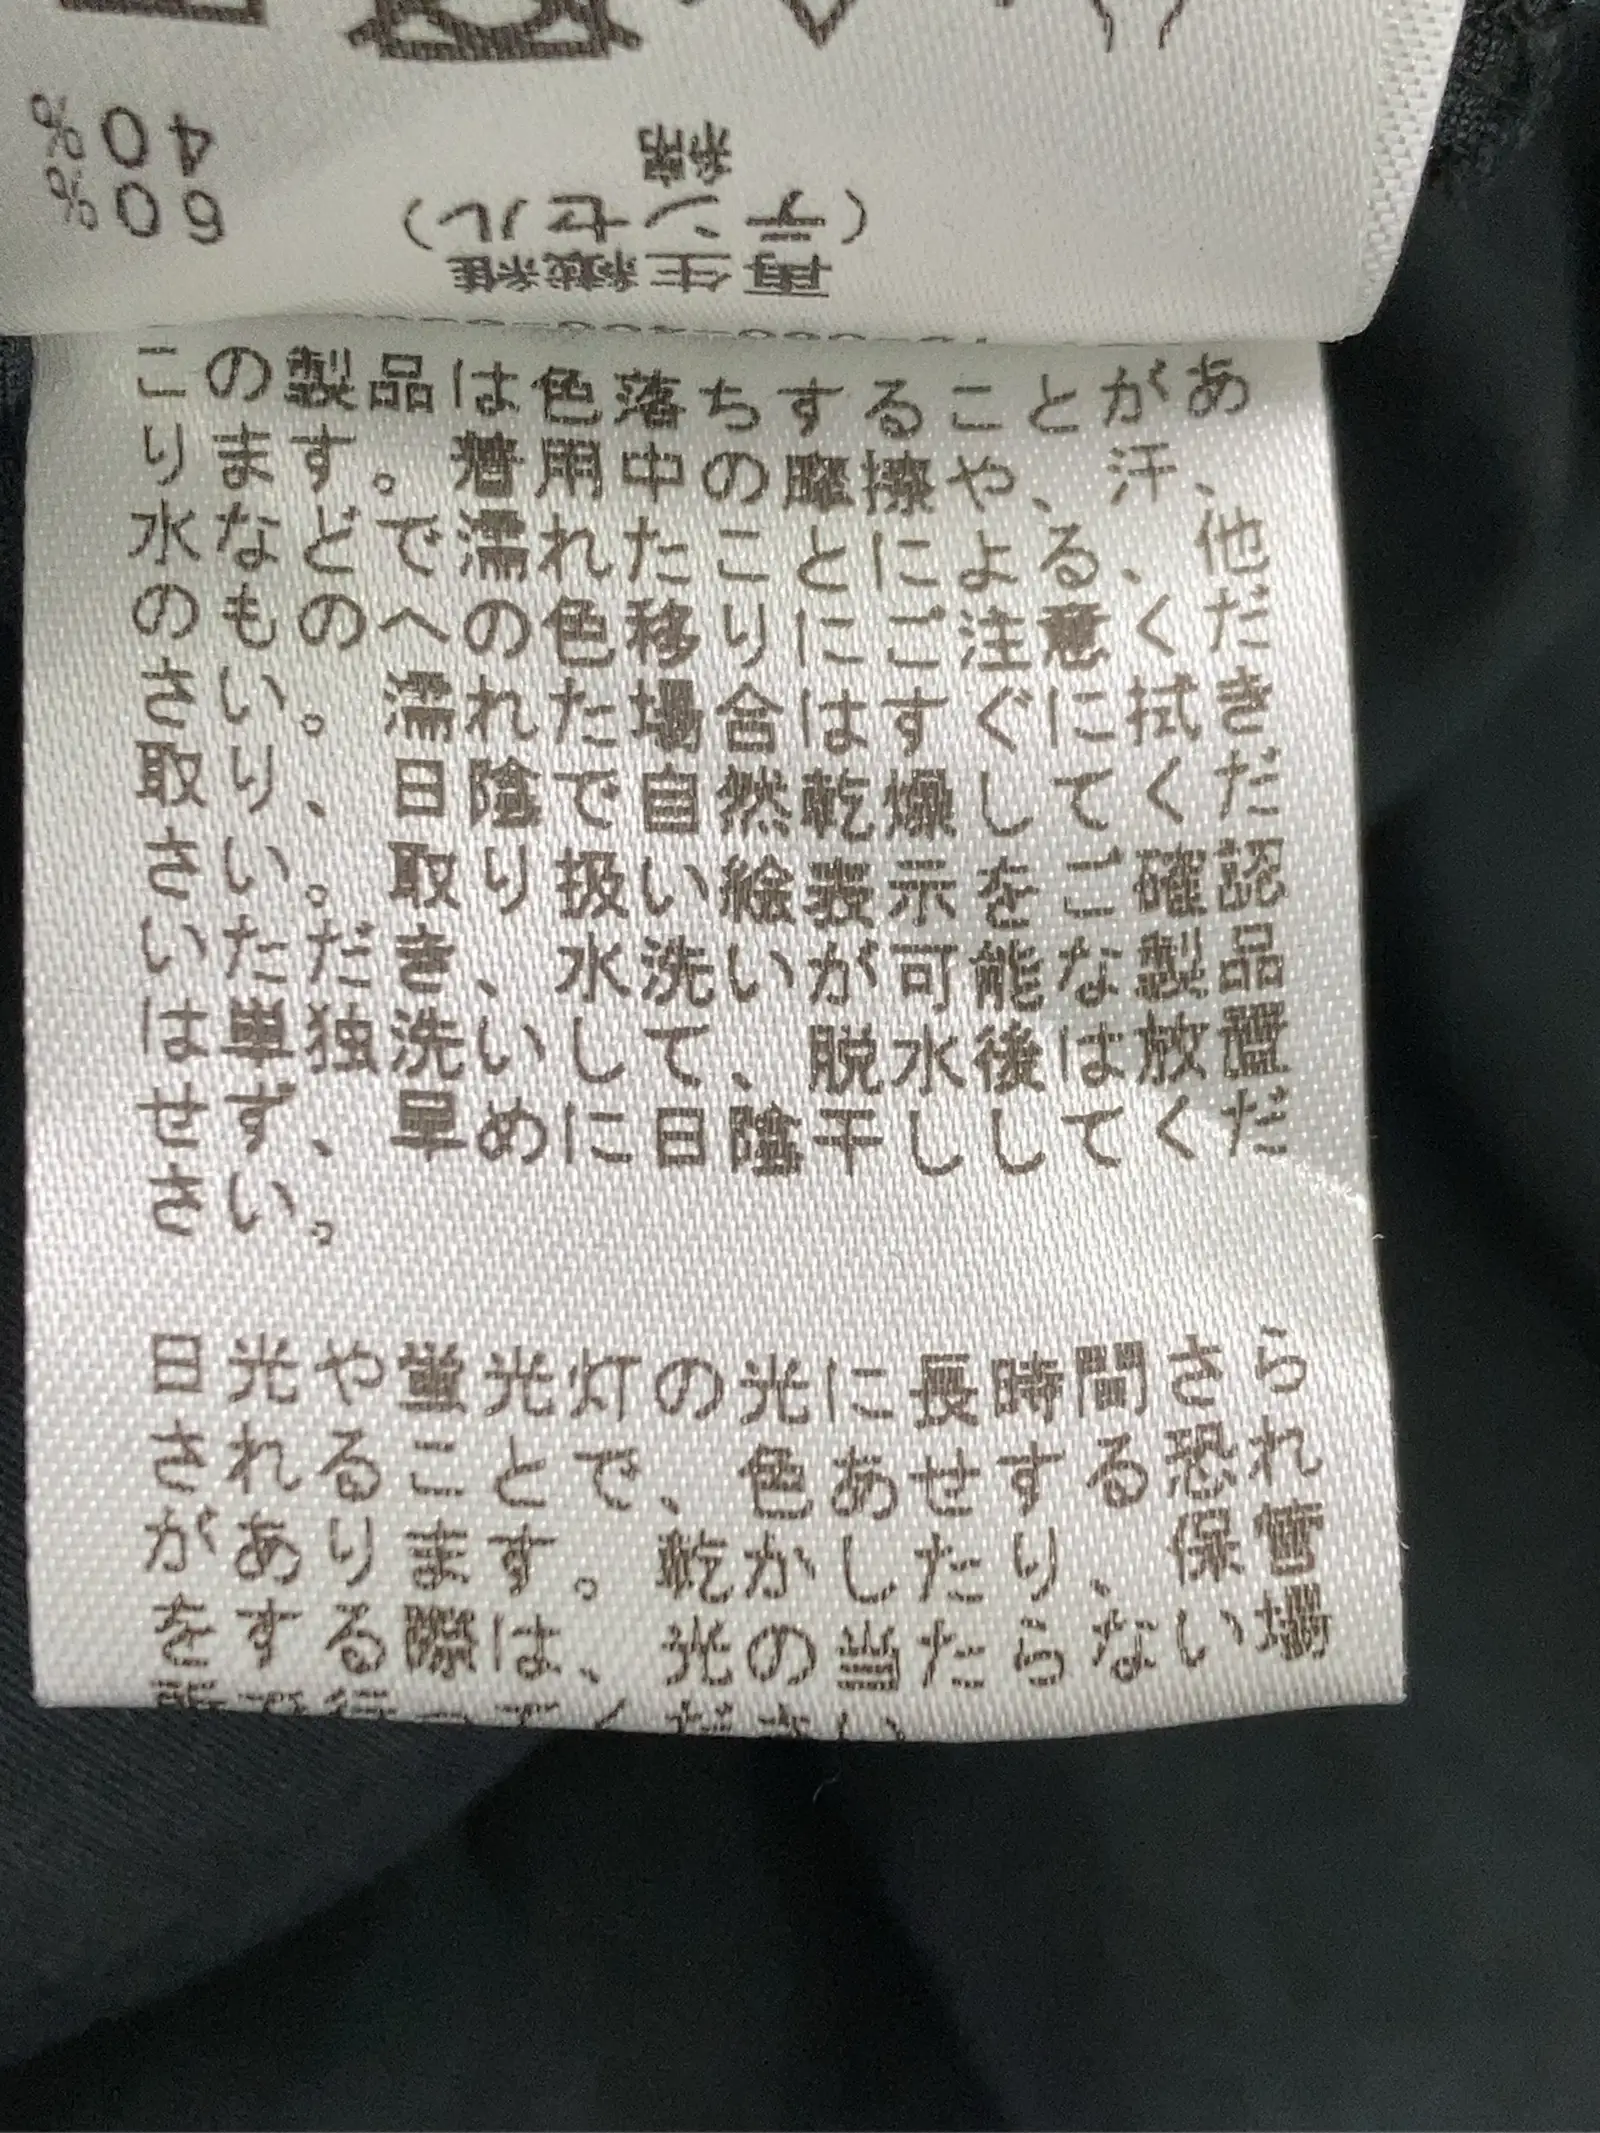 再生繊維
(テンセル) 60%
綿 40%
この製品は色落ちすることがあ
ります。着用中の摩擦や、汗、
水などで濡れたことによる、他
のものへの色移りにご注意くだ
さい。濡れた場合はすぐに拭き
取り、日陰で自然乾燥してくだ
さい。取り扱い絵表示をご確認
いただき、水洗いが可能な製品
は単独洗いして、脱水後は放置
せず、早めに日陰干ししてくだ
さい。
日光や蛍光灯の光に長時間さら
されることで、色あせする恐れ
があります。乾かしたり、保管
をする際は、光の当たらない場
所で行ってください